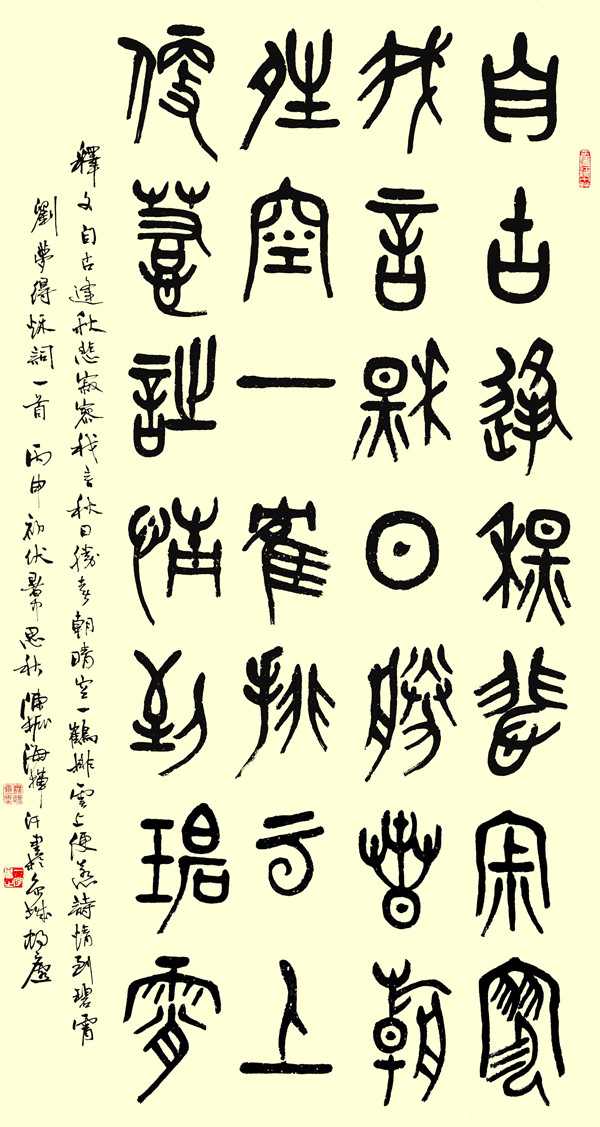 自古逢秋悲寂寥
我言秋日勝春朝
晴空一鶴排雲上
便詩情到碧霄
釋文 自古逢秋悲寂寥我言秋日勝春朝晴空一鶴排雲上便詩情到碧霄
劉夢得秋詞一首 丙申初伏暑中思秋 海揮汗書於